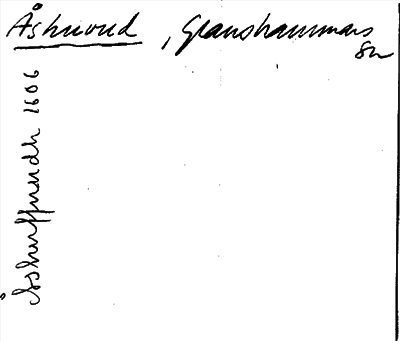 Åshuvud, Glanshammars
sn
Åshuffuudh 1606